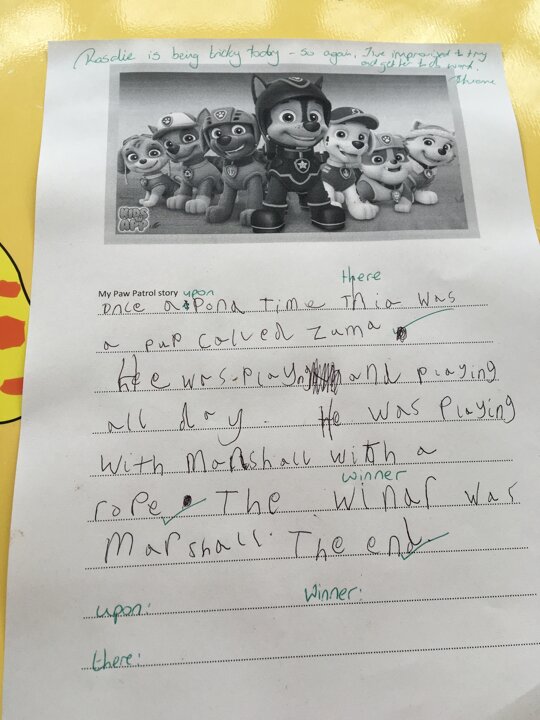 Rosalie is being tricky today - so again, I've improvised to try
and get her to do work.
KIDS APP
My Paw Patrol story upon there
once a pona Time Thia was
a pup calved zuma
He was. playng and playing
all day. He was Playing
with Marshall with a
winner
rope. The winar was
Marshall. The end.
upon: winner:
there: